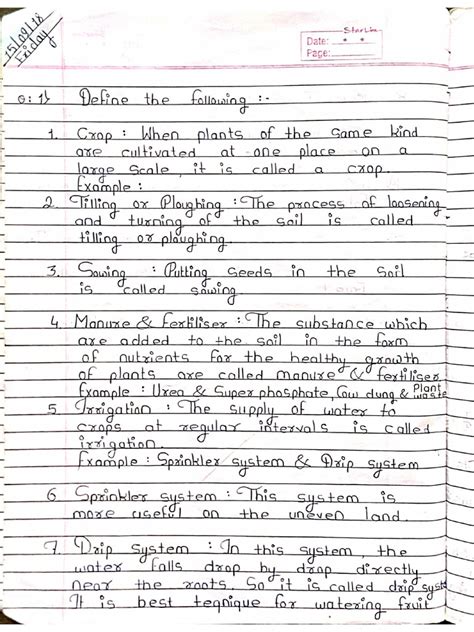 15/09/18
Friday
StarLin
Date:
Page:
Q:1} Define the following :-
1. Crop : When plants of the same kind
are cultivated at one place on a
large scale, it is called a crop.
Example :
2. Tilling or Ploughing : The process of loosening
and turning of the soil is called
tilling or ploughing.
3. Sowing : Putting seeds in the soil
is called sowing.
4. Manure & Fertiliser : The substance which
are added to the soil in the form
of nutrients for the healthy growth
of plants are called manure & fertiliser.
Example : Urea & Super phosphate, Cow dung & Plant waste
5. Irrigation : The supply of water to
crops at regular intervals is called
irrigation.
Example : Sprinkler system & Drip system
6. Sprinkler system : This system is
more useful on the uneven land.
7. Drip system : In this system, the
water falls drop by drop directly
near the roots. So it is called drip syst
It is best teqnique for watering fruit